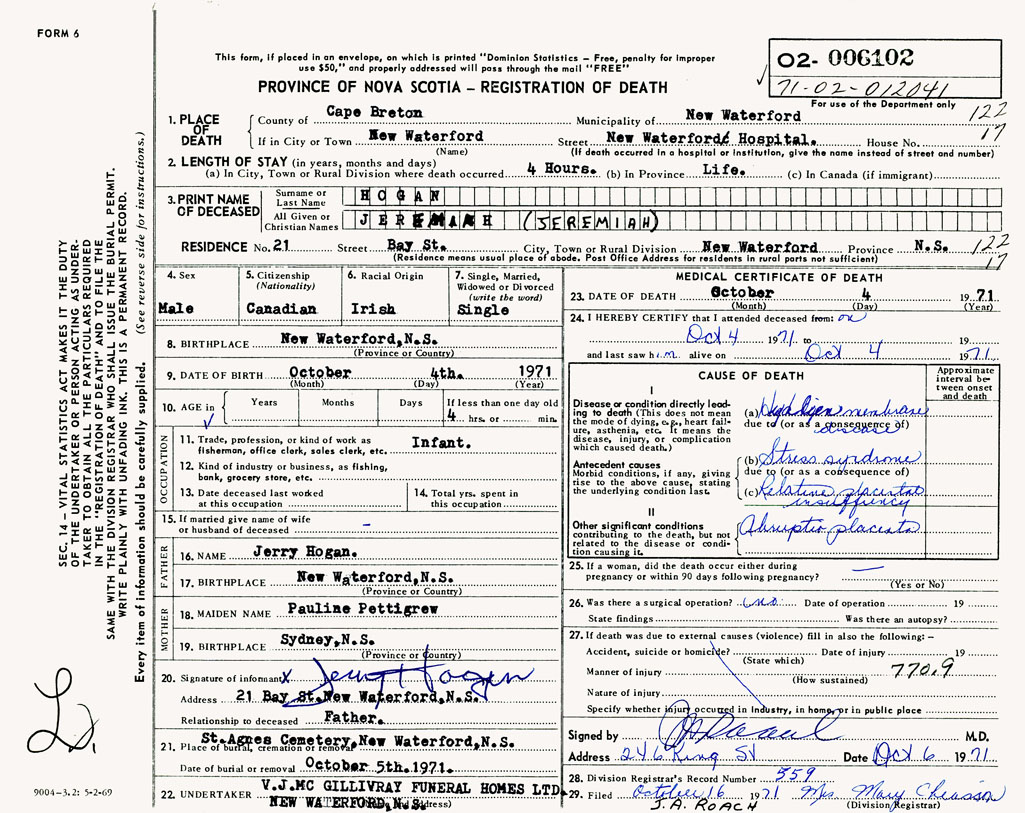 FORM 6
This form, if placed in an envelope, on which is printed "Dominion Statistics – Free, penalty for improper
use $50," and properly addressed will pass through the mail "FREE"
PROVINCE OF NOVA SCOTIA – REGISTRATION OF DEATH
02- 006102
71-02-012041
For use of the Department only
122
17
SEC. 14 – VITAL STATISTICS ACT MAKES IT THE DUTY
OF THE UNDERTAKER OR PERSON ACTING AS UNDER-
TAKER TO OBTAIN ALL THE PARTICULARS REQUIRED
IN THE "REGISTRATION OF DEATH" AND TO FILE THE
SAME WITH THE DIVISION REGISTRAR WHO SHALL ISSUE THE BURIAL PERMIT.
WRITE PLAINLY WITH UNFADING INK. THIS IS A PERMANENT RECORD.
Every item of information should be carefully supplied. (See reverse side for instructions.)
1. PLACE OF DEATH
County of Cape Breton Municipality of New Waterford
If in City or Town New Waterford Street New Waterford Hospital. House No.
(Name) (If death occurred in a hospital or institution, give the name instead of street and number)
2. LENGTH OF STAY (in years, months and days)
(a) In City, Town or Rural Division where death occurred 4 Hours. (b) In Province Life. (c) In Canada (if immigrant)
3. PRINT NAME OF DECEASED
Surname or Last Name HOGAN
All Given or Christian Names JEREMIAH (JEREMIAH)
RESIDENCE No. 21 Street Bay St. City, Town or Rural Division New Waterford Province N.S. 122
(Residence means usual place of abode. Post Office Address for residents in rural parts not sufficient) 17
4. Sex
Male
5. Citizenship
(Nationality)
Canadian
6. Racial Origin
Irish
7. Single, Married,
Widowed or Divorced
(write the word)
Single
8. BIRTHPLACE New Waterford, N.S.
(Province or Country)
9. DATE OF BIRTH October 4th. 1971
(Month) (Day) (Year)
10. AGE in Years Months Days If less than one day old
4 hrs. or min.
OCCUPATION
11. Trade, profession, or kind of work as
fisherman, office clerk, sales clerk, etc. Infant.
12. Kind of industry or business, as fishing,
bank, grocery store, etc.
13. Date deceased last worked
at this occupation
14. Total yrs. spent in
this occupation
15. If married give name of wife
or husband of deceased –
FATHER
16. NAME Jerry Hogan.
17. BIRTHPLACE New Waterford, N.S.
MOTHER
18. MAIDEN NAME Pauline Pettigrew
19. BIRTHPLACE Sydney, N.S.
(Province or Country)
20. Signature of informant X Jerry Hogan
Address 21 Bay St. New Waterford, N.S.
Relationship to deceased Father.
21. Place of burial, cremation or removal St. Agnes Cemetery, New Waterford, N.S.
Date of burial or removal October 5th. 1971.
22. UNDERTAKER V.J. MC GILLIVRAY FUNERAL HOMES LTD.
NEW WATERFORD, N.S. (Address)
MEDICAL CERTIFICATE OF DEATH
23. DATE OF DEATH October 4 1971
(Month) (Day) (Year)
24. I HEREBY CERTIFY that I attended deceased from: on
Oct 4 1971 to 19
and last saw him alive on Oct 4 1971
CAUSE OF DEATH
Approximate
interval be-
tween onset
and death
I
Disease or condition directly lead-
ing to death (This does not mean
the mode of dying, e.g., heart fail-
ure, asthenia, etc. It means the
disease, injury, or complication
which caused death.)
(a) membrane
disease
due to (or as a consequence of)
Antecedent causes
Morbid conditions, if any, giving
rise to the above cause, stating
the underlying condition last.
(b) Stress syndrome
due to (or as a consequence of)
(c) Relative placental
insufficiency
II
Other significant conditions
contributing to the death, but not
related to the disease or condi-
tion causing it.
Abruptio placenta
25. If a woman, did the death occur either during
pregnancy or within 90 days following pregnancy? —
(Yes or No)
26. Was there a surgical operation? Date of operation 19
State findings Was there an autopsy?
27. If death was due to external causes (violence) fill in also the following: –
Accident, suicide or homicide? Date of injury 19
(State which)
Manner of injury 770,9
(How sustained)
Nature of injury
Specify whether injury occurred in industry, in home, or in public place
Signed by M.D.
Address 246 King St Date Oct 6 1971
28. Division Registrar's Record Number 559
29. Filed October 16 1971 Mrs. Mary Chiasson
J.A. ROACH (Division Registrar)
9004-3.2: 5-2-69